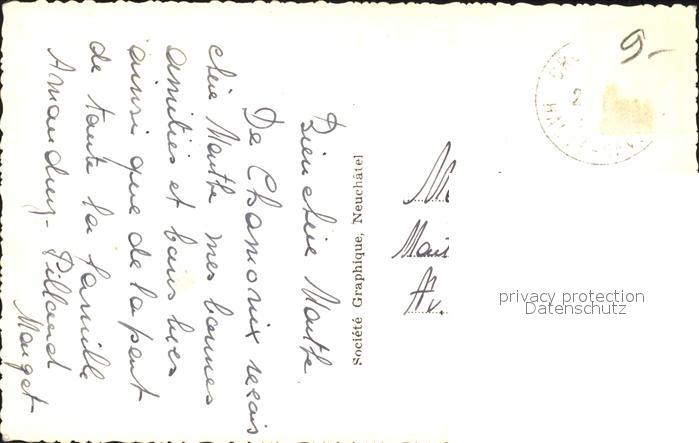 Bien chère Marthe
De Chamonix reçois
chère Marthe mes bonnes
amitiés et bons baisers
ainsi que de la part
de toute la famille
Amaudruz - Pilloud
Maiget
Société Graphique, Neuchâtel
M
Mai
Av.
9.-
privacy protection
Datenschutz